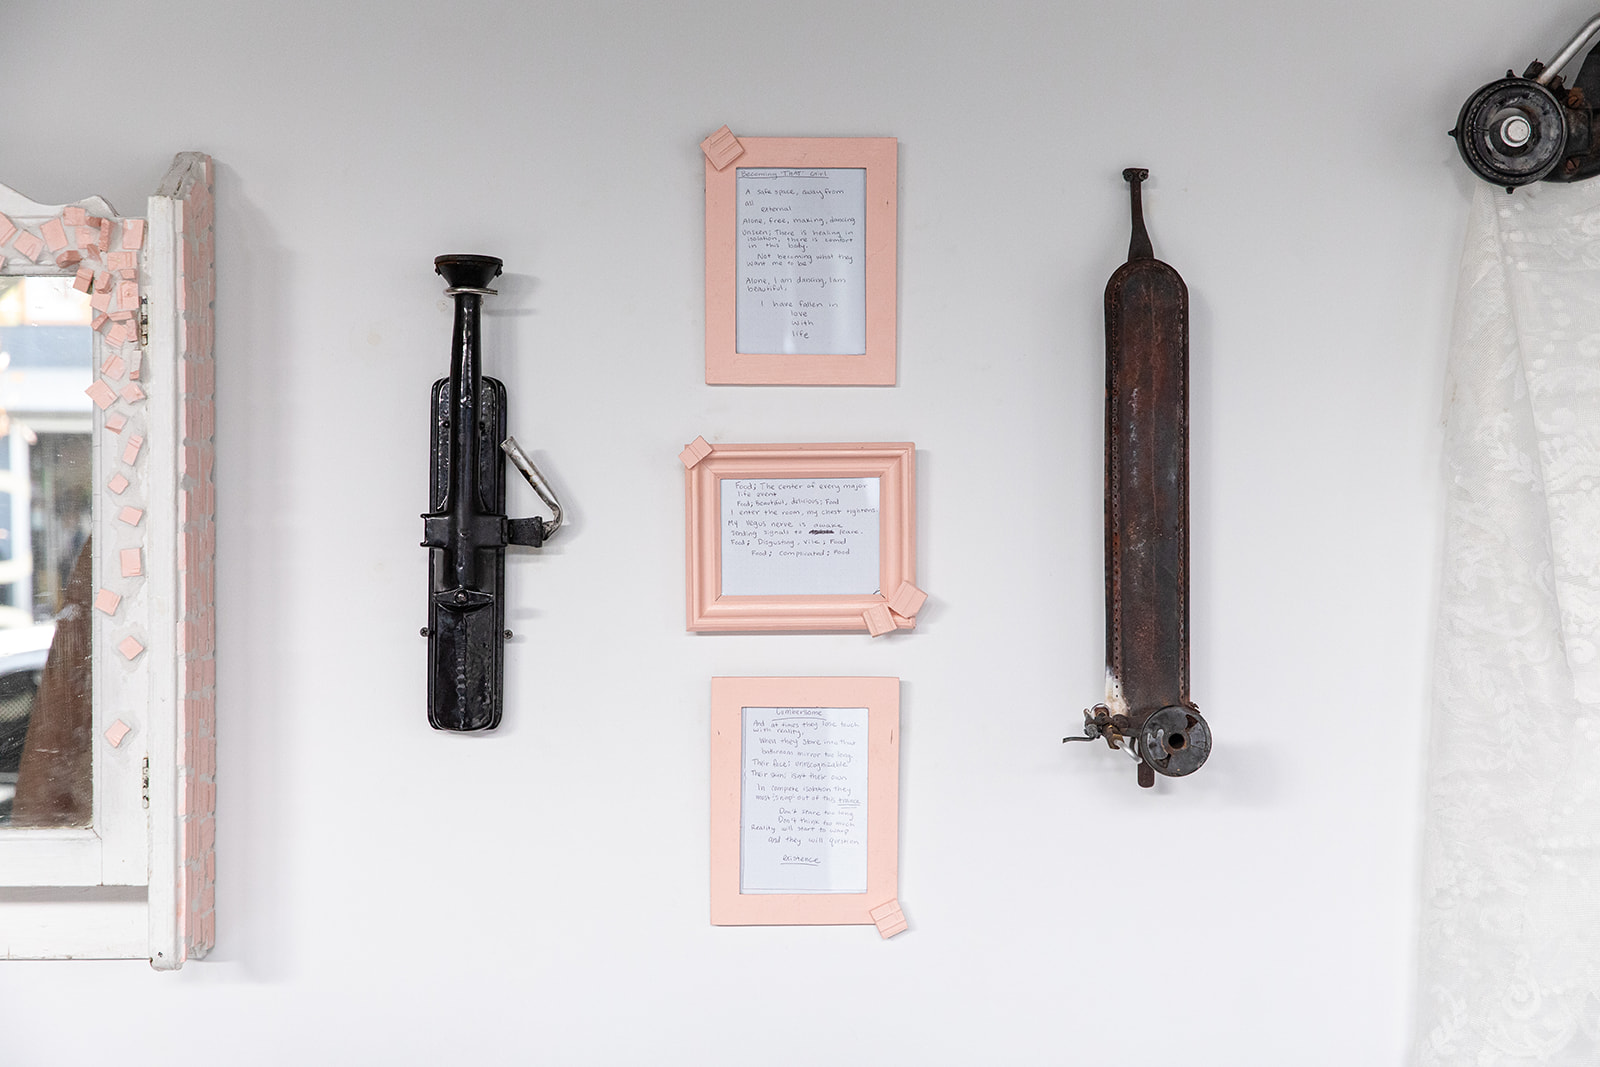 Becoming THAT Girl
A safe space, away from
all
external
Alone, free, making, dancing
Unseen; There is healing in
isolation, there is comfort
in this body.
Not becoming what they
want me to be
Alone, I am dancing, I am
beautiful,
I have fallen in
love
with
life
Food; The center of every major
life event
Food; Beautiful, delicious; Food
I enter the room, my chest tightens.
My Vegus nerve is awake
Sending signals to leave.
Food; Disgusting, vile; Food
Food; complicated; Food
Cumbersome
And at times they lose touch
with reality,
When they stare into that
bathroom mirror too long
Their face; unrecognizable
Their skin; isn't their own
In complete isolation they
must snap out of this trance
Don't stare too long
Don't think too much
Reality will start to warp
And they will question
existence